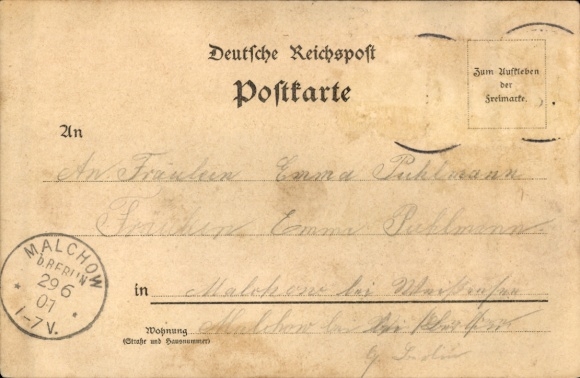 Deutsche Reichspost
Postkarte
Zum Aufkleben
der
Freimarke.
An
An Fräulein Emma Puhlmann
Fräulein Emma Puhlmann
in Malchow bei Weissensee
Malchow bei
Wohnung
(Straße und Hausnummer)
MALCHOW
b.BERLIN
29 6
01
1-7V.